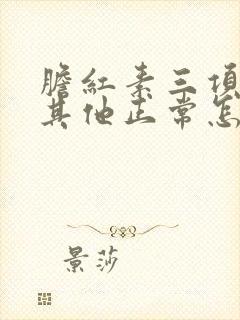 膽紅素三項
其他正常怎
景莎